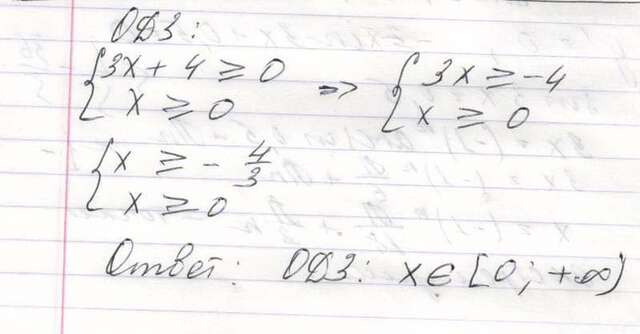 ОДЗ:
{3x + 4 ≥ 0 => {3x ≥ -4
{x ≥ 0 {x ≥ 0
{x ≥ - 4/3
{x ≥ 0
Ответ: ОДЗ: x ∈ [0; +∞)